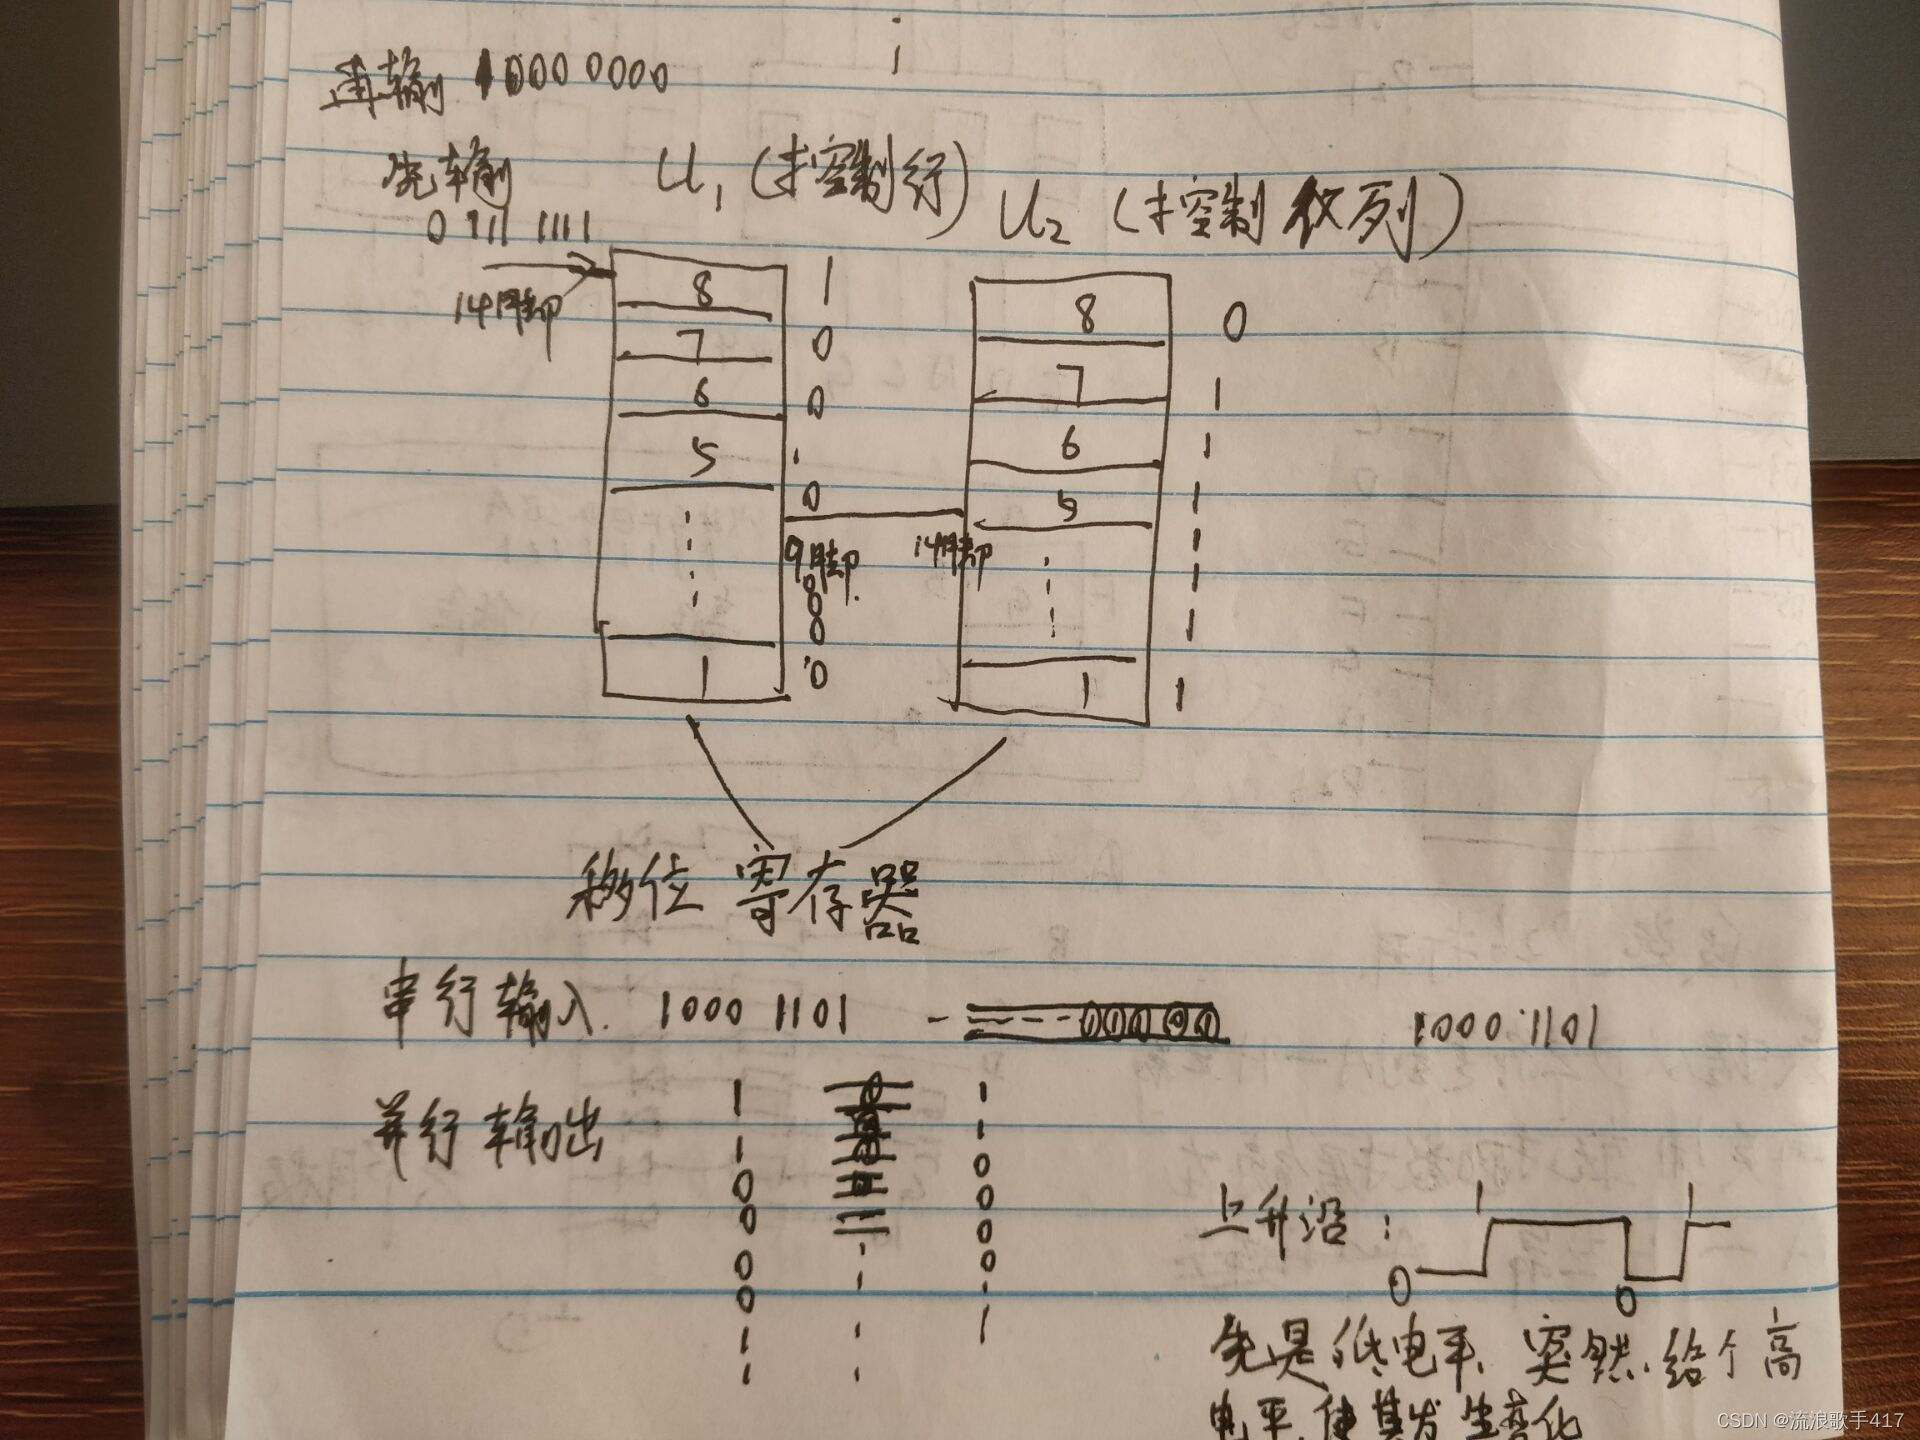 再输 1000 0000
先输 U1 (控制行) U2 (控制列)
0 111 1111
14脚
8 1
7 0
6 0
5
0
8 0
7 1
6 1
5 1
1
1
1
9脚 14脚
0
0
1 0
1 1
移位寄存器
串行输入 1000 1101 1000 1101
并行输出
1
1
0
0
0
0
1
1
1
1
0
0
0
0
1
上升沿:
1 1
0 0
先是低电平、突然给个高
电平,使其发生变化
CSDN @流浪歌手417